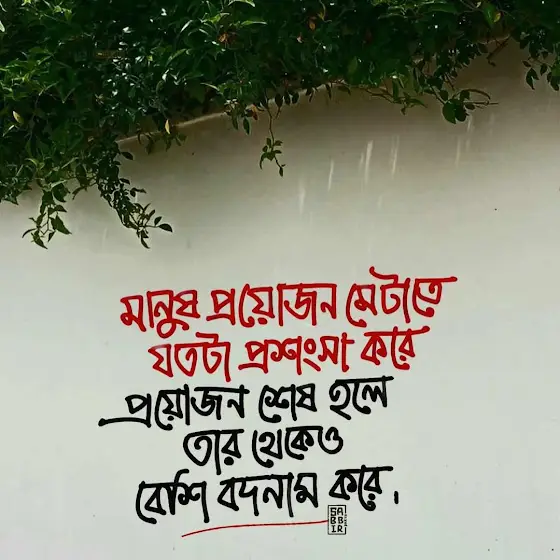 মানুষ প্রয়োজন মেটাতে
যতটা প্রশংসা করে
প্রয়োজন শেষ হলে
তার থেকেও
বেশি বদনাম করে.
SABBIR